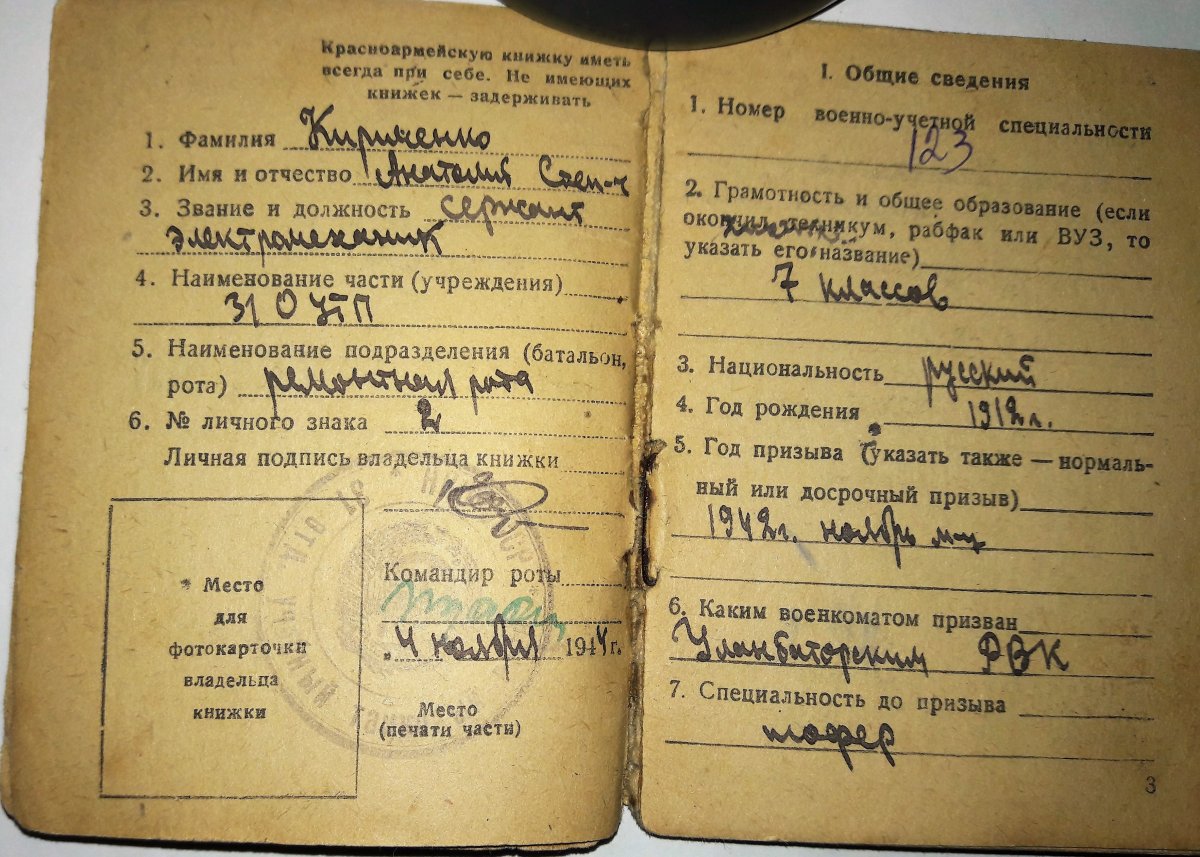 Красноармейскую книжку иметь
всегда при себе. Не имеющих
книжек — задерживать
1. Фамилия Кириченко
2. Имя и отчество Анатолий Степ-ч
3. Звание и должность сержант
электромеханик
4. Наименование части (учреждения)
31 О УТП
5. Наименование подразделения (батальон,
рота) ремонтная рота
6. № личного знака 2
Личная подпись владельца книжки
* Место
для
фотокарточки
владельца
книжки
Командир роты
„4 ноября 1944 г.
Место
(печати части)
I. Общие сведения
1. Номер военно-учетной специальности
123
2. Грамотность и общее образование (если
окончил техникум, рабфак или ВУЗ, то
указать его название)
7 классов
3. Национальность русский
4. Год рождения 1912 г.
5. Год призыва (указать также — нормаль-
ный или досрочный призыв)
1942 г. ноябрь м-ц
6. Каким военкоматом призван
Уланбаторским РВК
7. Специальность до призыва
шофер
3